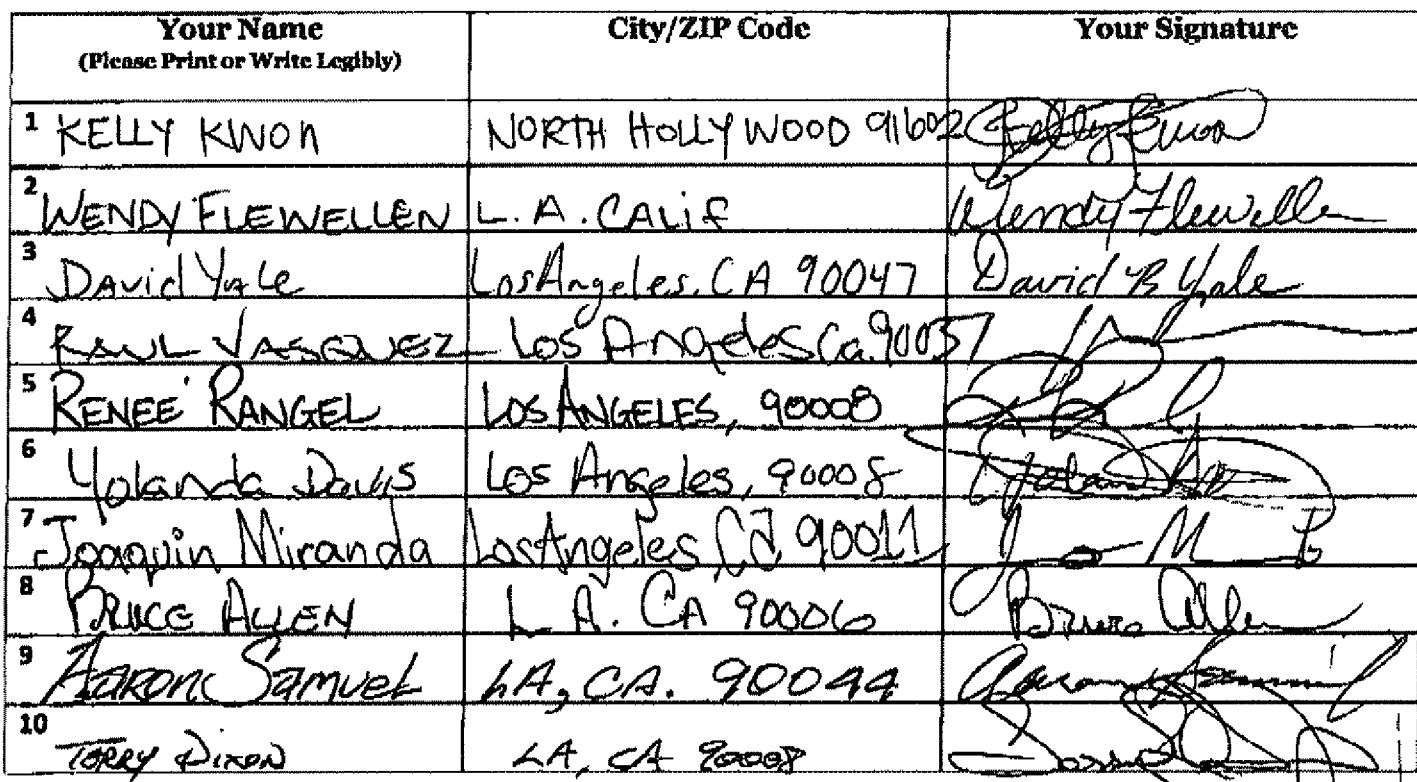 Your Name City/ZIP Code Your Signature
(Please Print or Write Legibly)
1 KELLY KWON NORTH HOLLYWOOD 91602 Kelly Kwon
2 WENDY FLEWELLEN L.A. CALIF Wendy Flewellen
3 David Yale Los Angeles, CA 90047 David B Yale
4 RAUL VASQUEZ Los Angeles Ca. 90037
5 RENEE RANGEL LOS ANGELES, 90008
6 Yolanda Davis Los Angeles, 90008
7 Joaquin Miranda Los Angeles, Ca 90011
8 BRUCE ALLEN L.A. CA 90006 Bruce Allen
9 AARON SAMUEL LA, CA. 90044 Aaron Samuel
10 TERRY DIXON LA, CA 90008